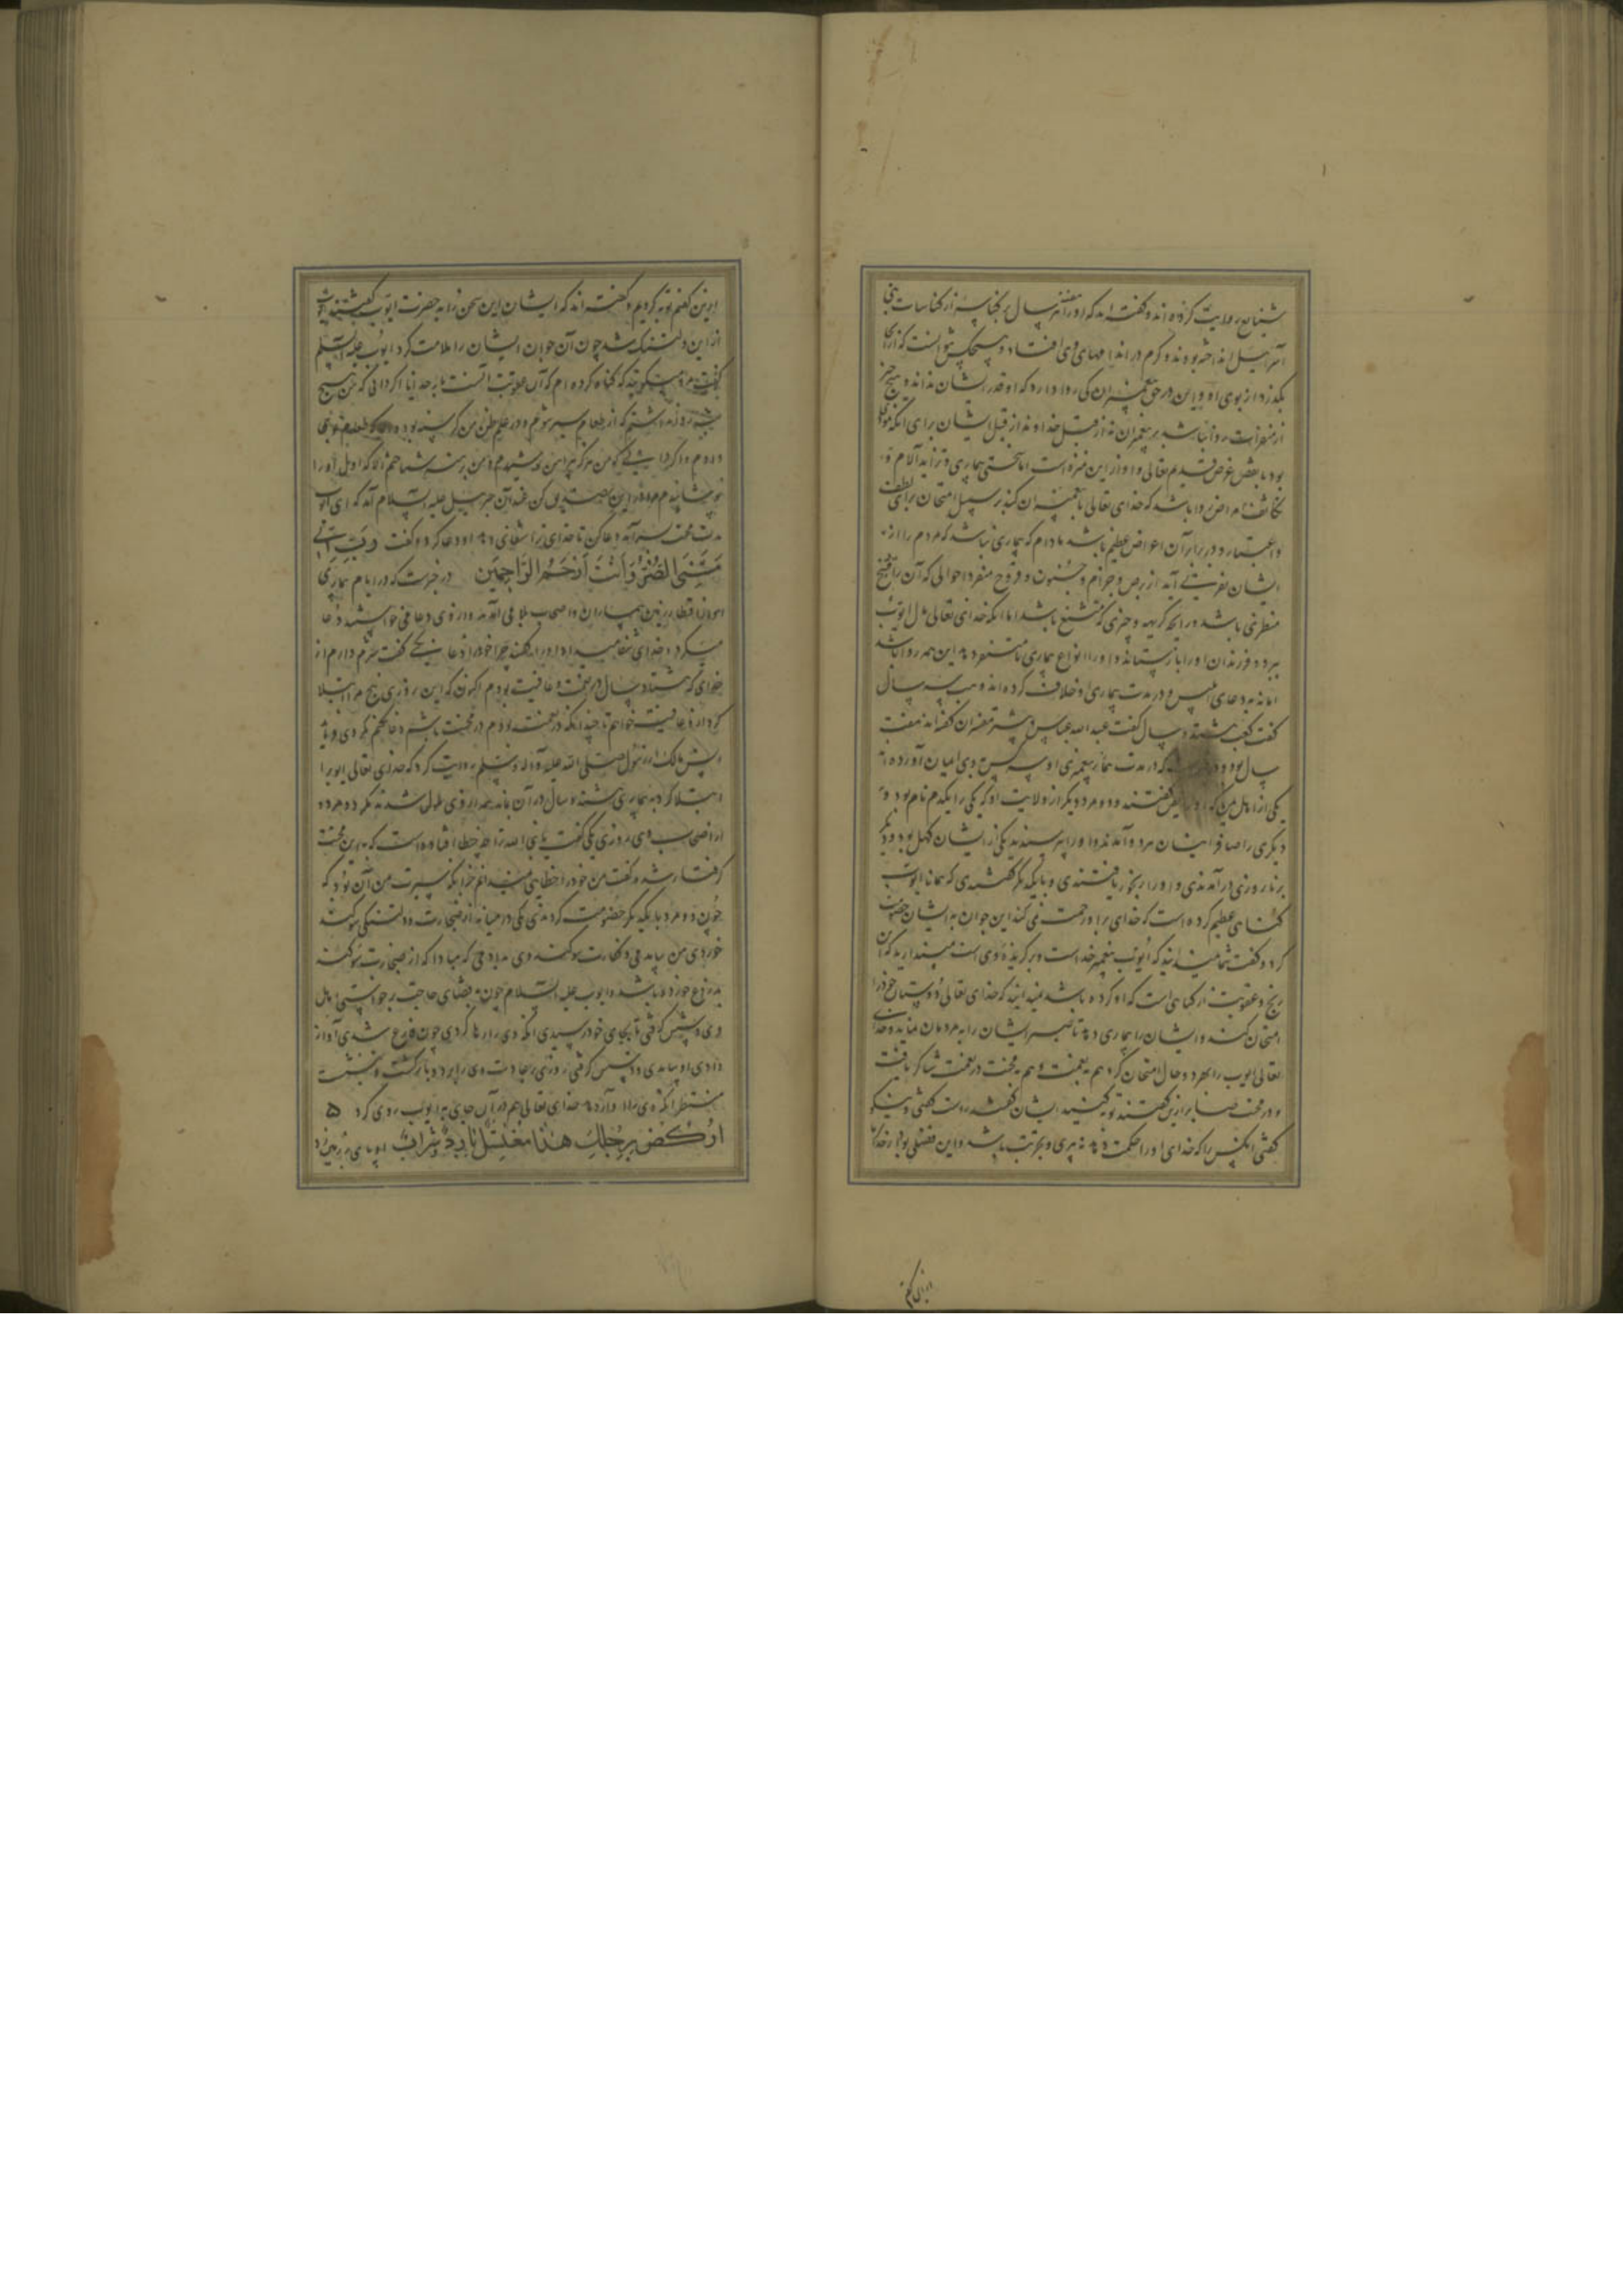 شنایع روایت کرده‌اند و گفته‌اند که او را هفت سال بر کناسه از کناسات بنی
اسرائیل انداخته بودند و کرم در اندامهای وی افتاد و هیچکس نتوانست که از آنجا
بگذرد از بوی او و این در حق پیغمبران کی روا دارد که او قدر ایشان نداند و هیچ چیز
از منفرات روا نباشد بر پیغمبران نه از قبل خدا و نه از قبل ایشان برای آنکه
بود با نقض غرض قدیم تعالی و او از این منزه است اما سختی بیماری و تزاید آلام و
تکاثف امراض روا باشد که خدای تعالی با پیغمبران کند بر سبیل امتحان برای لطف
و اعتبار و در برابر آن اعواض عظیم باشد مادام که بیماری نباشد که مردم را از
ایشان نفرتی آید از برص و جذام و جنون و قروح منفر و احوالی که آن را قبح
منظری باشد و رائحه کریهه و چیزی که مستشنع باشد اما آنکه خدای تعالی مال ایوب
ببرد و فرزندان او را باز ستاند و او را انواع بیماری نامستنفر دهد این همه روا باشد
اما نه بدعای ابلیس و در مدت بیماری او خلاف کرده‌اند وهب سه سال
گفت کعب هشتده سال گفت عبد الله عباس و بیشتر مفسران گفته‌اند هفت
سال بود و که در مدت بیماری پیغمبری او سه کس به وی ایمان آورده
یکی از اهل یمن که او را گفتند و دو مرد دیگر از ولایت او که یکی را یلدم نام بود و
دیگری را صافر ایشان هر دو آمدند و او را پرسیدند یکی از ایشان کهل بود و دیگر
برنا روزی در آمدندی و او را رنجور یافتندی و با یکدیگر گفتندی که همانا ایوب
گناهی عظیم کرده است که خدای بر او رحمت نمی‌کند این جوان به ایشان خصومت
کرد و گفت شما میدانید که ایوب پیغمبر خداست و برگزیده وی است میپندارید که آن
رنج و عقوبت از گناهی است که او کرده باشد نمیدانید که خدای تعالی دوستان خود را
امتحان کند و ایشان را بیماری دهد تا صبر ایشان را به مردمان نماید و خدای
تعالی ایوب را بهر دو حال امتحان کرد هم به نعمت و هم به محنت در نعمت شاکر یافت
و در محنت صابر ازین گفتند توبه کنید ایشان گفتند راست گفتی و نیکو
گفتی آنکس را که خدای او را حکمت دهد نه به پیری و تجربت باشد و این فضلی بود از خدا ما
ازین گفتم توبه کردیم و گفته‌اند که ایشان این سخن را به حضرت ایوب گفتند ایوب
از این دلتنگ شد چون آن جوان ایشان را ملامت کرد ایوب علیه السلم
گفت مردم میگویند که گناه کرده‌ام که آن عقوبت آنست بار خدایا اگر دانی که من هیچ
شب و روز نداشتم که از طعام سیر شوم و در علم و ظن من گرسنه بود
دارم و اگر دانی که من هرگز پیراهن نپوشیدم و من برهنه شناختم الا که اول او را
پوشانیدم مرا در این تصدیق کن عند آن جبرئیل علیه السلام آمد که ای ایوب
مدت محنت بسر آمد دعا کن تا خدای ترا شفای دهد او دعا کرد و گفت رب انی
مسنی الضر و انت ارحم الراحمین در خبرست که در ایام بیماری
از اقطار زمین بیماران و اصحاب بلا می‌آمدند و از وی دعا می‌خواستند دعا
میکرد و خدای شفا میداد او را گفتند چرا خود را دعا نکنی گفت شرم دارم از
خدای که هشتاد سال در نعمت و عافیت بودم اکنون که این روزی پنج مرا ابتلا
کرد از او عافیت خواهم تا چندانکه در نعمت بودم در محنت باشم دعا نکنم
انس مالک از رسول صلی الله علیه و آله و سلم روایت کرد که خدای تعالی ایوب را
ابتلا کرد به بیماری هشتده سال در آن بماند همه از وی ملول شدند مگر دو مرد
از اصحاب وی روزی یکی گفت یا نبی الله ترا چه خطا افتاده است که به این محنت
گرفتار شدی گفت من خود را خطایی نمیدانم جز آنکه سیرت من آن بود که
چون دو مرد با یکدیگر خصومت کردندی یکی در میانه از ضجارت و دلتنگی سوگند
خوردی من بیامدمی و کفارت سوگند وی بدادمی که مبادا که از ضجارت سوگند
بدروغ خورده باشد و ایوب علیه السلام چون به قضای حاجت برخواستی اهل
وی دستش گرفتی تا بجای خود رسیدی آنگه وی را رها کردی چون فارغ شدی آواز
دادی او بیامدی و دستش گرفتی روزی بر عادت وی را ببرد و بازگشت و بنشست
منتظر آنکه وی را آواز دهد خدای تعالی هم در آن جای به ایوب وحی کرد ۵
ارکض برجلک هذا مغتسل بارد و شراب او پای بر زمین زد
ازین گفتم